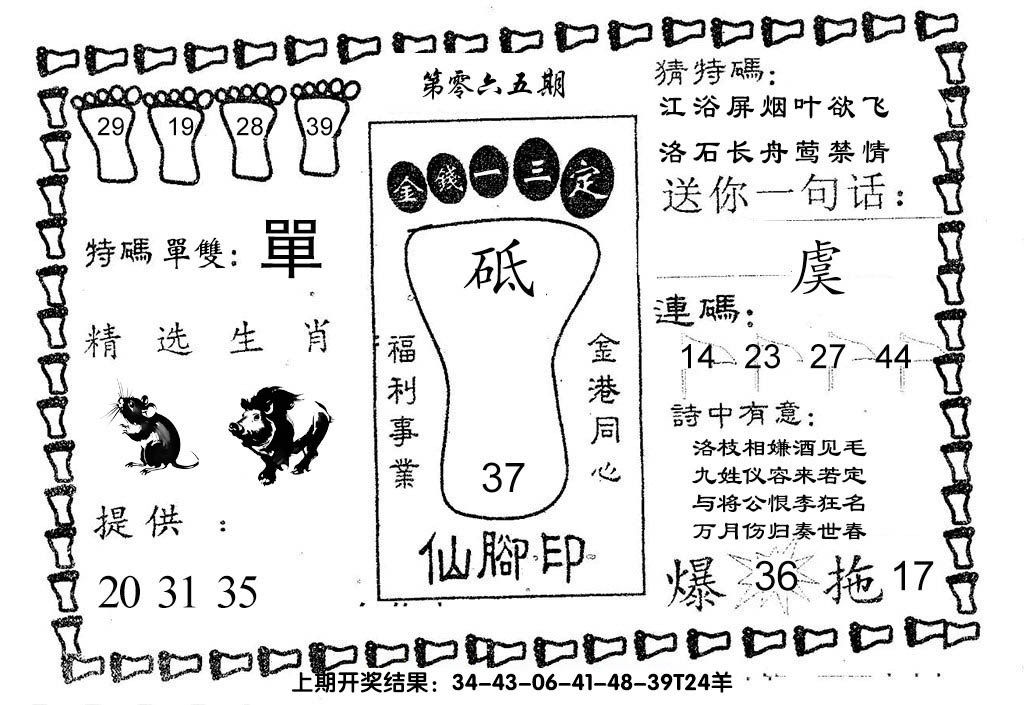 第零六五期
29 19 28 39
特碼單雙：單
精选生肖
提供：
20 31 35
金錢一三定
砥
福利事業
金港同心
37
仙腳印
猜特碼：
江浴屏烟叶欲飞
洛石长舟莺禁情
送你一句话：
虞
連碼：
14 23 27 44
詩中有意：
洛枝相嫌酒见毛
九姓仪容来若定
与将公恨李狂名
万月伤归奏世春
爆 36 拖 17
上期开奖结果：34-43-06-41-48-39T24羊